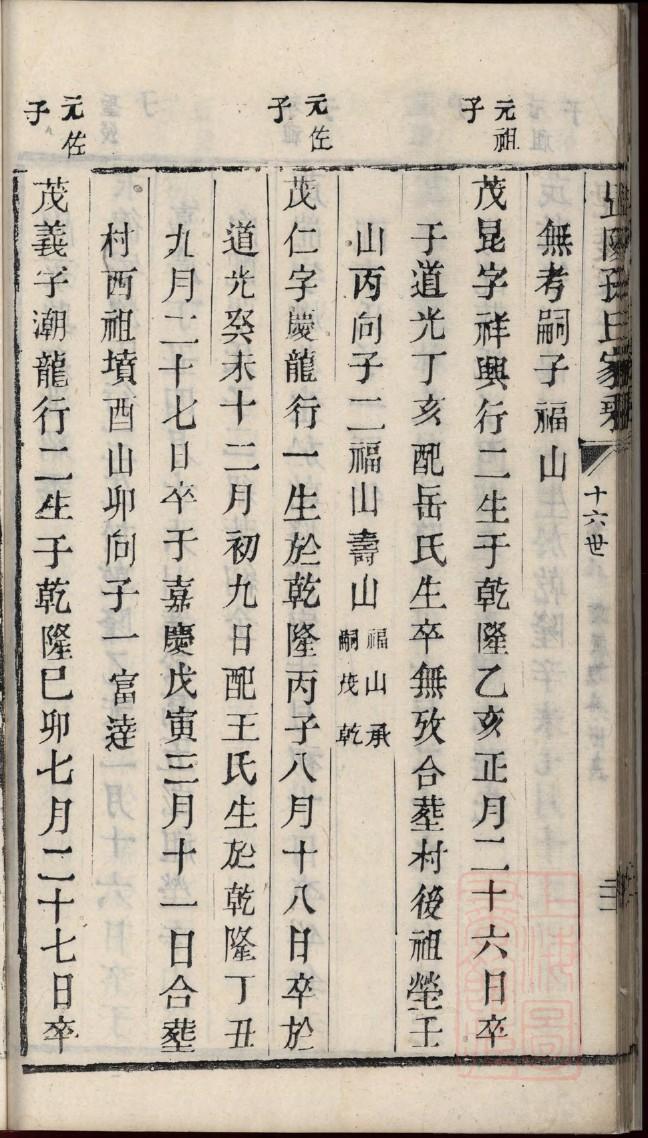 孫氏家乘
十六世
無考嗣子福山
元祖子
茂昆字祥興行二生于乾隆乙亥正月二十六日卒
于道光丁亥配岳氏生卒無攷合塟村後祖塋壬
山丙向子二福山壽山福山承嗣茂乾
元佐子
茂仁字慶龍行一生於乾隆丙子八月十八日卒於
道光癸未十二月初九日配王氏生於乾隆丁丑
九月二十七日卒于嘉慶戊寅三月十一日合塟
村西祖墳酉山卯向子一富逹
元佐子
茂義字潮龍行二生于乾隆己卯七月二十七日卒